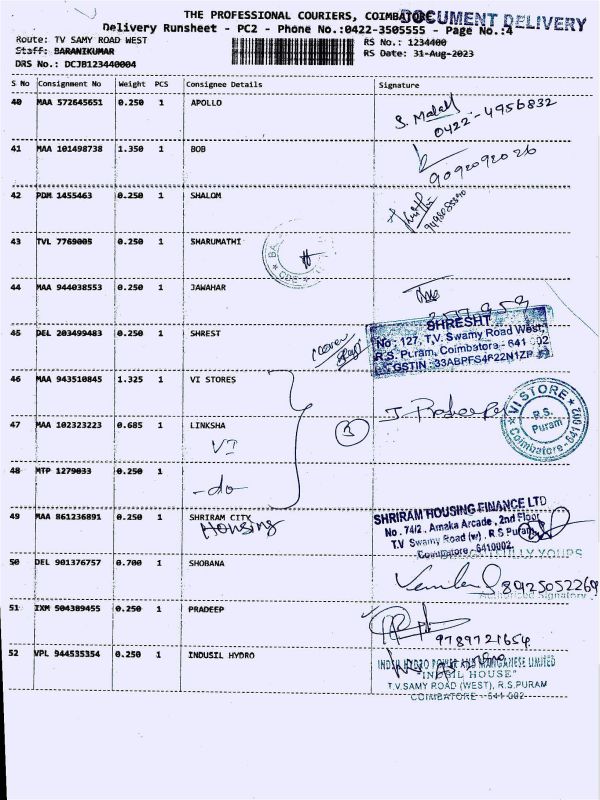 THE PROFESSIONAL COURIERS, COIMBATORE
DOCUMENT DELIVERY
Delivery Runsheet - PC2 - Phone No.:0422-3505555 - Page No.:4
Route: TV SAMY ROAD WEST
RS No.: 1234400
Staff: BARANIKUMAR
RS Date: 31-Aug-2023
DRS No.: DCJB123440004
S No Consignment No Weight PCS Consignee Details Signature
40 MAA 572645651 0.250 1 APOLLO
0422-4956832
41 MAA 101498738 1.350 1 BOB
9092092026
42 PDM 1455463 0.250 1 SHALOM
43 TVL 7769005 0.250 1 SHARUMATHI
44 MAA 944038553 0.250 1 JAWAHAR
45 DEL 203499483 0.250 1 SHREST
SHRESHT
No : 127, T.V. Swamy Road West,
R.S. Puram, Coimbatore - 641 002
GSTIN : 33ABPFS4622N1ZP
46 MAA 943510845 1.325 1 VI STORES
VI STORE
R.S. Puram
Coimbatore - 641 002
47 MAA 102323223 0.685 1 LINKSHA
VI
3
48 MTP 1279033 0.250 1
-do
49 MAA 861236891 0.250 1 SHRIRAM CITY
Housing
SHRIRAM HOUSING FINANCE LTD
No. 74/2, Amaka Arcade, 2nd Floor
T.V Swamy Road (w), R.S Puram,
Coimbatore - 6410002.
YOURS
50 DEL 901376757 0.700 1 SHOBANA
8925052269
Authorised Signatory
51 IXM 504389455 0.250 1 PRADEEP
9789721654
52 VPL 944535354 0.250 1 INDUSIL HYDRO
INDSIL HYDRO POWER AND MANGANESE LIMITED
"INDSIL HOUSE"
T.V.SAMY ROAD (WEST), R.S.PURAM
COIMBATORE - 641 002